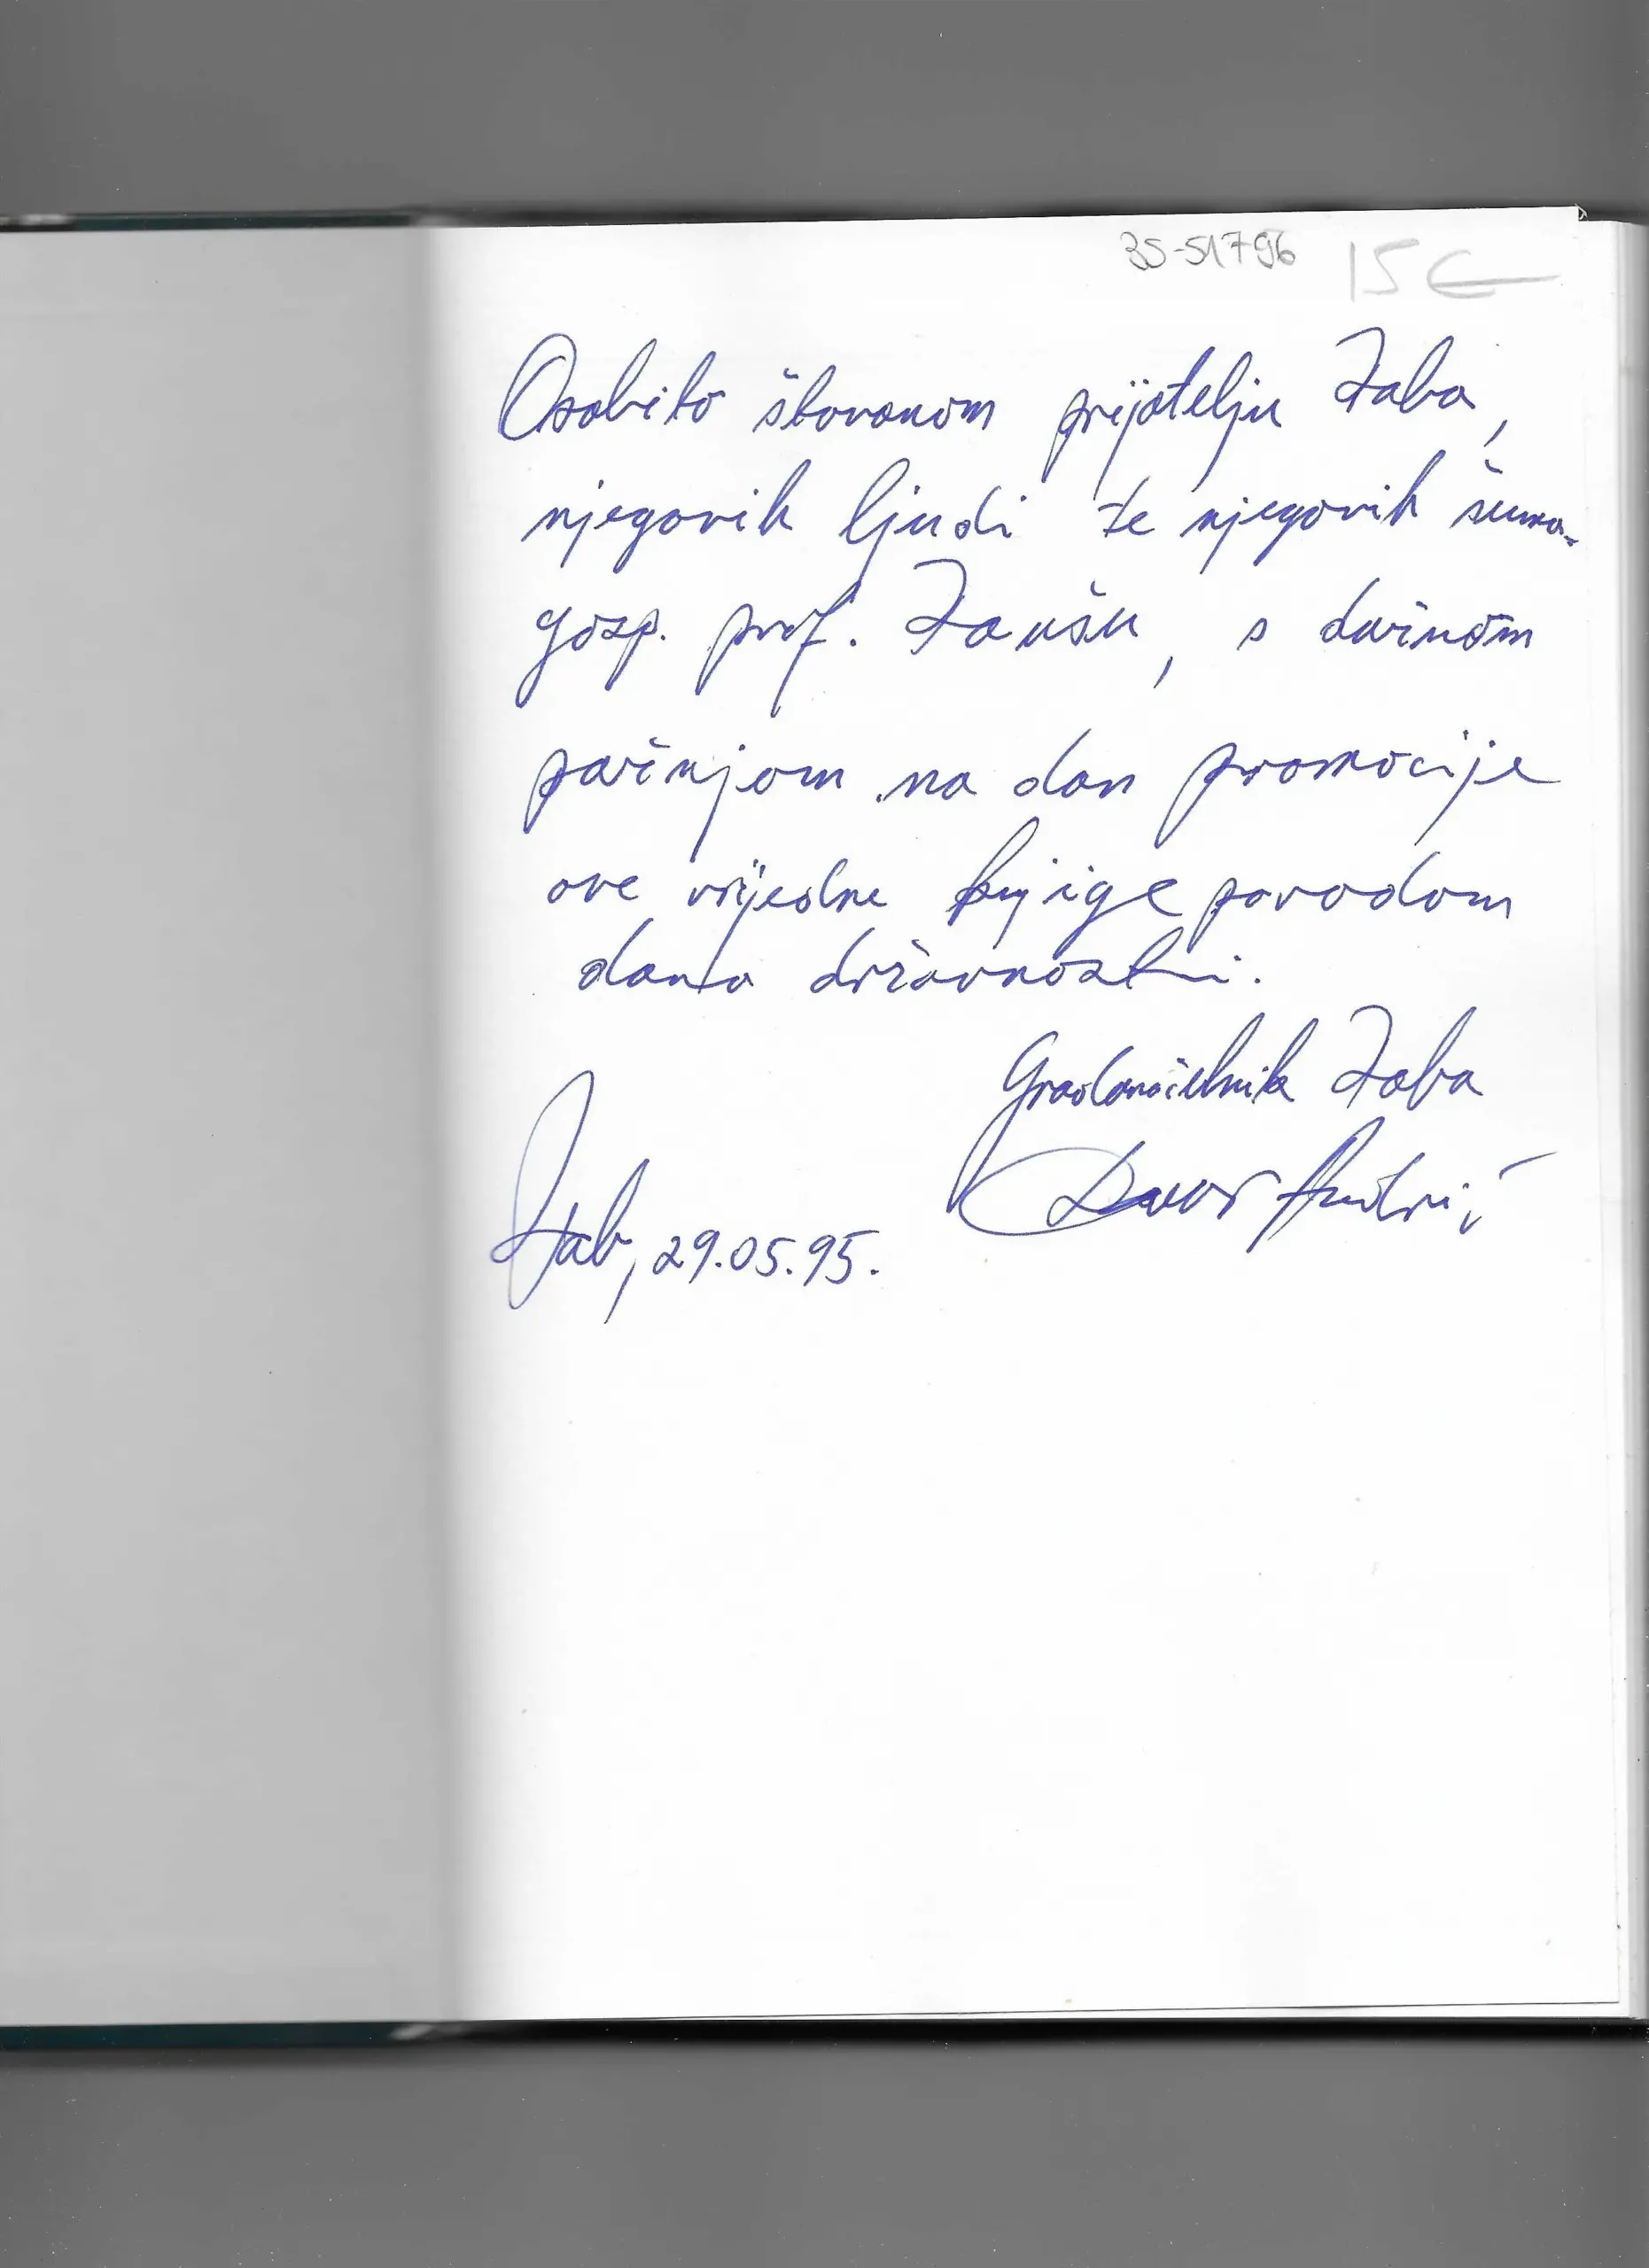 35-51796 15 €
Osobito štovanom prijatelju Raba,
njegovih ljudi te njegovih šuma-
gosp. prof. Raušu, s dužnom
pažnjom na dan promocije
ove vrijedne knjige povodom
dana državnosti.
Gradonačelnik Raba
Rab, 29.05.95.